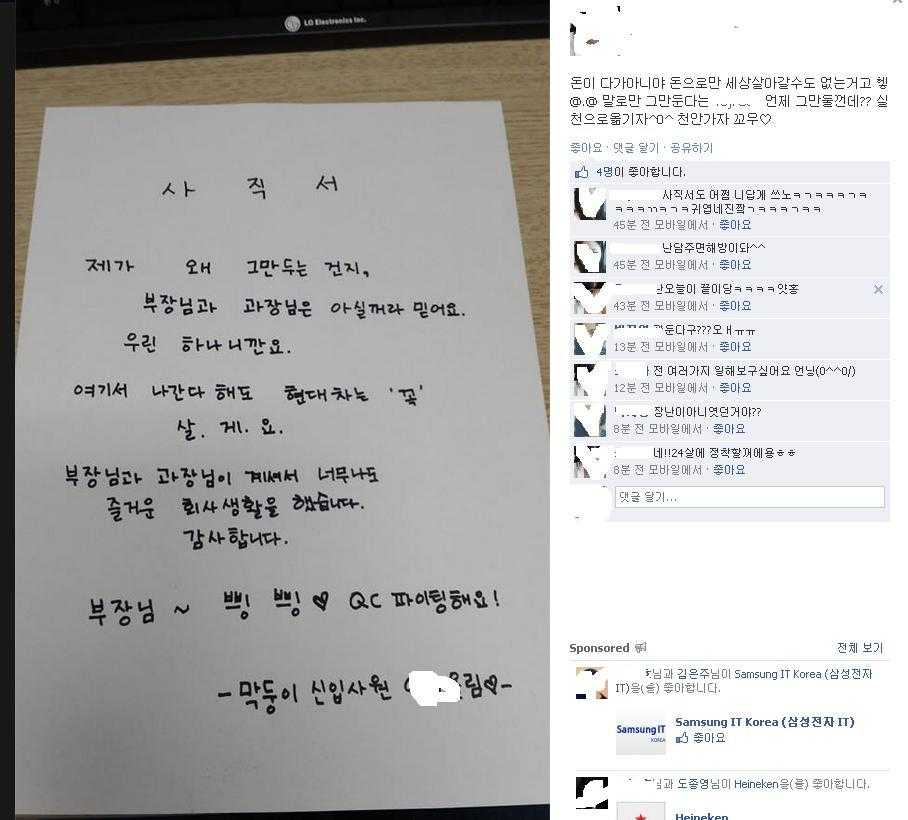 LG Electronics Inc.
사 직 서
제가 왜 그만두는 건지,
부장님과 과장님은 아실꺼라 믿어요.
우린 하나니깐요.
여기서 나간다 해도 현대차는 '꼭'
살. 게. 요.
부장님과 과장님이 계셔서 너무나도
즐거운 회사생활을 했습니다.
감사합니다.
부장님 ~ 쁘잉 쁘잉 ♥ QC 파이팅해요!
-막둥이 신입사원 림♥-
돈이 다가아니야 돈으로만 세상살아갈수도 없는거고 헿
@.@ 말로만 그만둔다는 언제 그만둘껀데?? 실
천으로옮기자^0^ 천안가자 꼬우♡
좋아요 · 댓글 달기 · 공유하기
4명이 좋아합니다.
사직서도 어쩜 니답게 쓰노ㅋㄱㅋㅋㅋㄱㅋ
귀엽네진짴ㄱㅋㅋㅋㄱㅋㅋ
45분 전 모바일에서 · 좋아요
난담주면해방이돠^^
45분 전 모바일에서 · 좋아요
난오늘이 끝이당ㅋㅋㅋㅋ얏홍
43분 전 모바일에서 · 좋아요
둔다구???오ㅐㅠㅠ
13분 전 모바일에서 · 좋아요
전 여러가지 일해보구싶어요 언닝(0^^0/)
12분 전 모바일에서 · 좋아요
장난이아니엿던거야??
8분 전 모바일에서 · 좋아요
네!!24살에 정착할꺼에용ㅎㅎ
8분 전 모바일에서 · 좋아요
댓글 달기...
Sponsored 전체 보기
님과 김은주님이 Samsung IT Korea (삼성전자
IT)을(를) 좋아합니다.
Samsung IT
KOREA
Samsung IT Korea (삼성전자 IT)
좋아요
님과 도종영님이 Heineken을(를) 좋아합니다.
Heineken